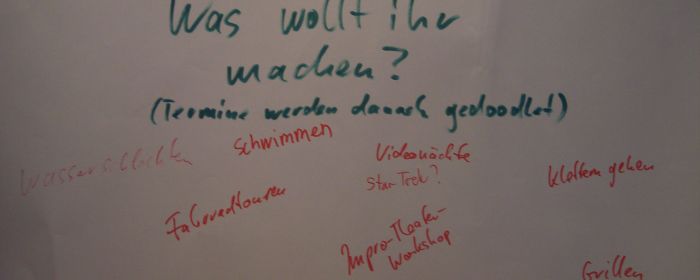 Was wollt ihr
machen?
(Termine werden danach gedoodlet)
Wasserschlachten
schwimmen
Videonächte
Star Trek?
Klettern gehen
Fahrradtouren
Impro-Theater-
Workshop
Grillen